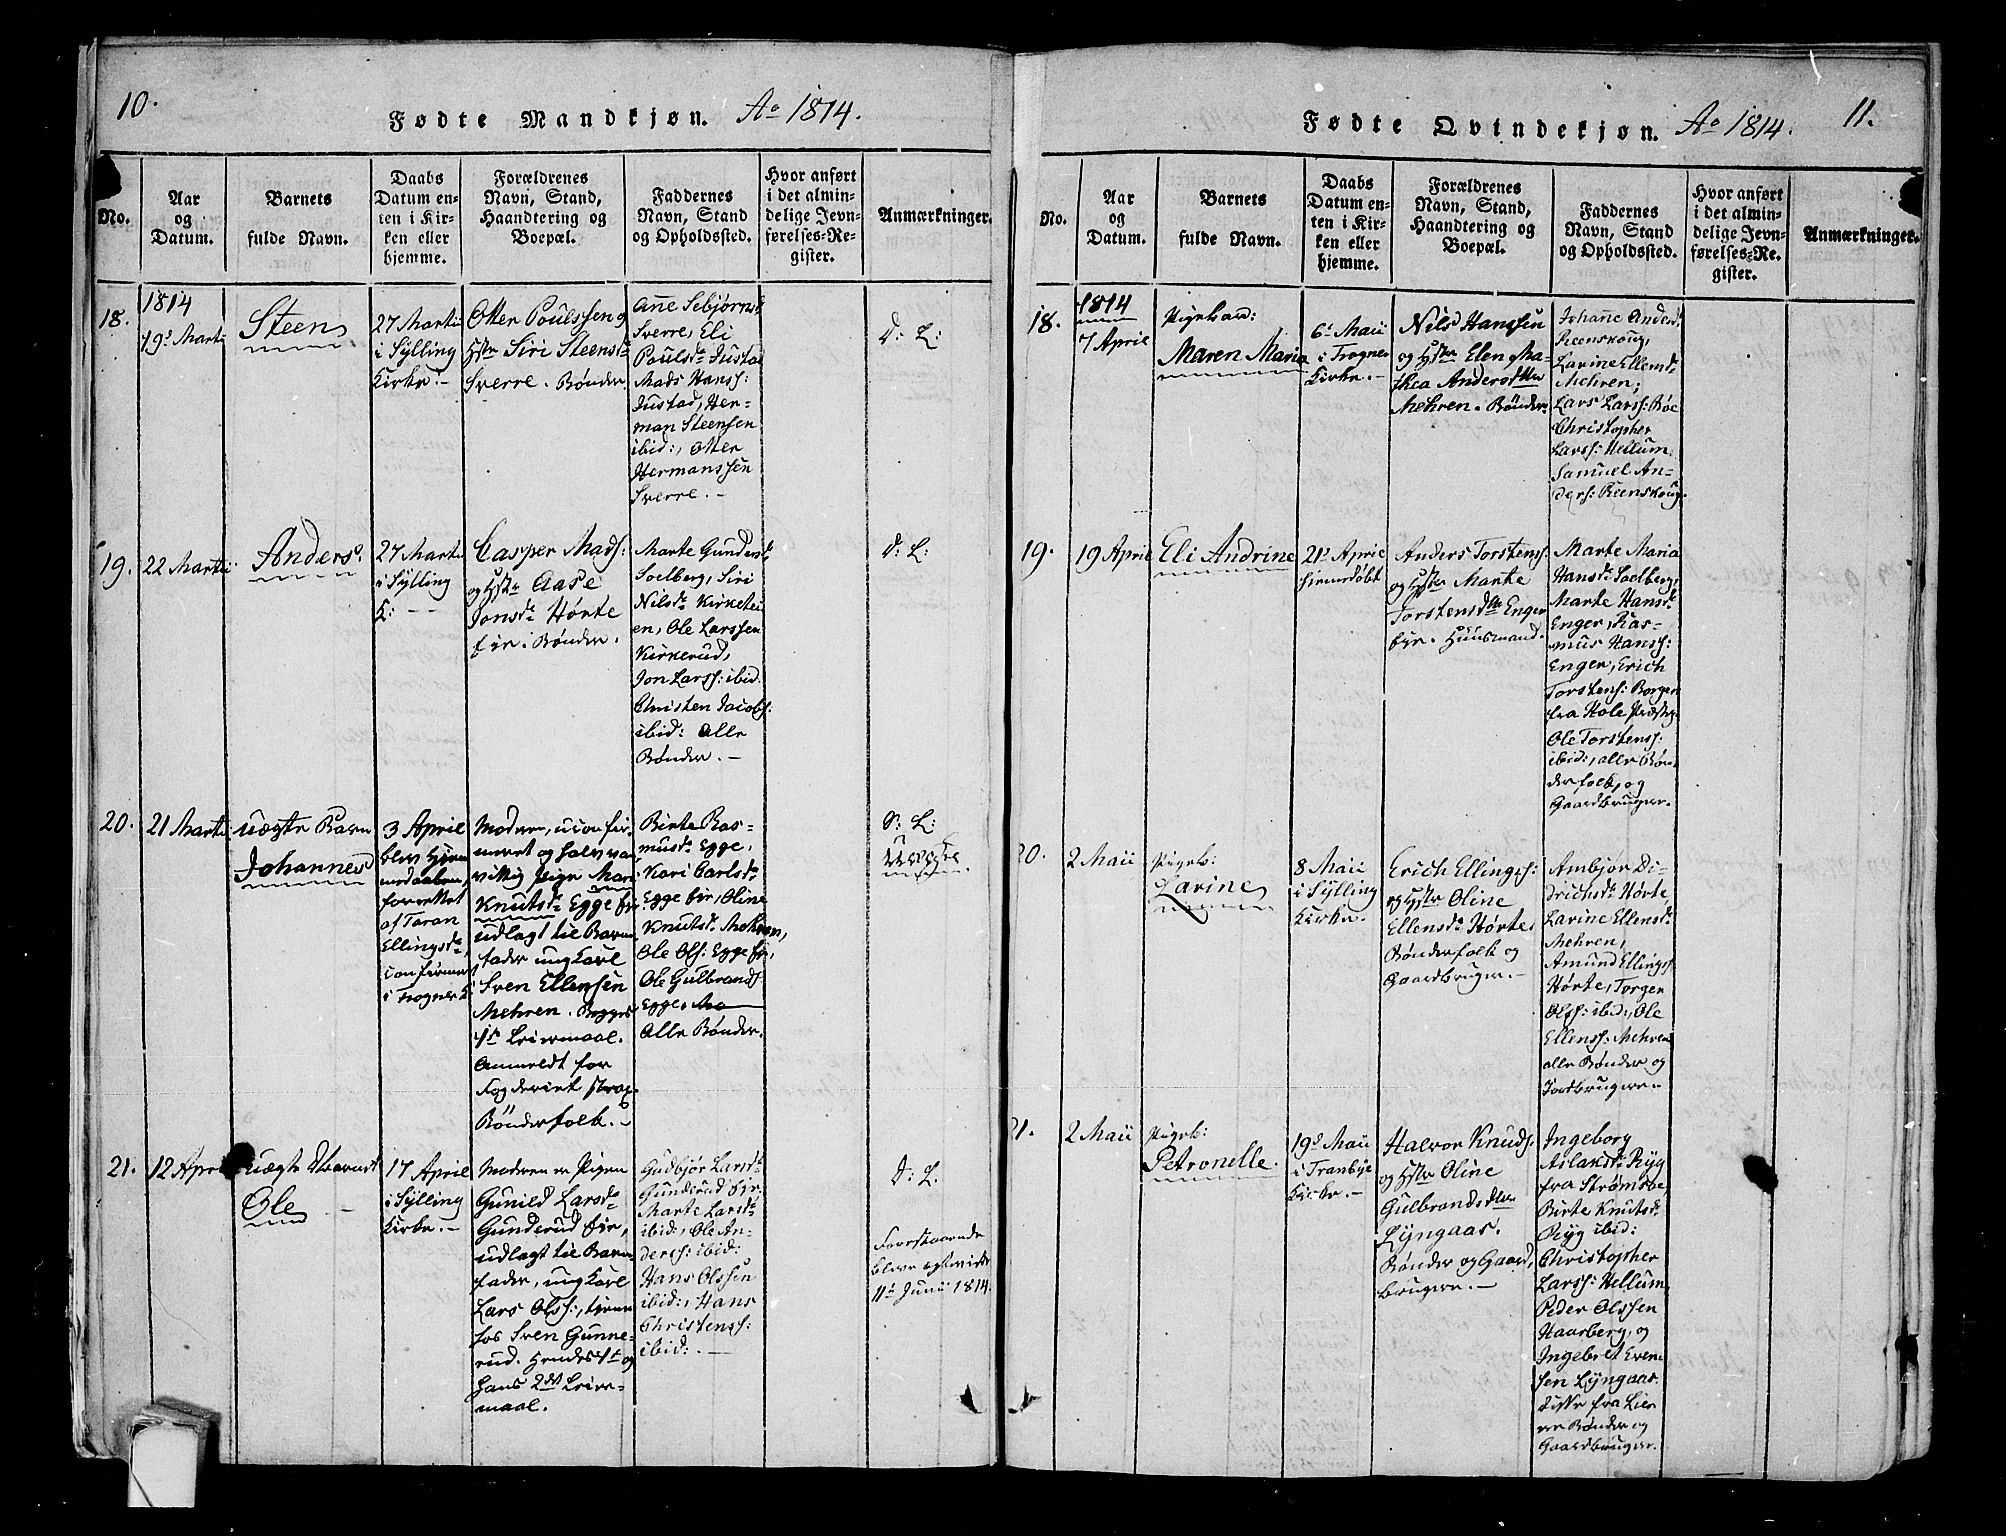 10.
Fødte Mandkjøn. Ao 1814.
No.
Aar
og
Datum.
Barnets
fulde Navn.
Daabs
Datum en-
ten i Kir-
ken eller
hjemme.
Forældrenes
Navn, Stand,
Haandtering og
Boepæl.
Faddernes
Navn, Stand
og Opholdssted.
Hvor anført
i det almin-
delige Jevn-
førelses-Re-
gister.
Anmærkninger.
18.
1814
19de Marti
Steen
27 Martii
i Sylling
Kirke. -
Otter Poulssen og
Hstr Siri Steensdr
Sverre. Bønder
Anne Sebjørnsdr
Sverre, Eli
Paulsdr Justad
Mads Hanss:
Justad, Her-
man Steensen
ibid:, Otter
Hermanssen
Sverre. -
d: L:
19.
22 Martii
Anders.
27 Martii
i Sylling
K: - -
Casper Mads:
og Hstr Aase
Jonsdr Hørte
eir. Bønder.
Marte Gundersdr
Soelberg, Siri
Nilsdr Kirketei
en, Ole Larssen
Kirkerud,
Jon Larss: ibid.
Christen Jacobs:
ibid: alle
Bønder. -
d: L:
20.
21 Martii
uægte Barn
Johannes
3 April
blev hjem
medaaben,
forrettet
af Taran
Ellingsdr
confirmert
i Frogner K
Moderen, uconfir
meret og halv van
vittig Pige Mari
Knutsdr Egge eir
udlagt til Barne
fader ungkarl
Sven Ellensen
Mehren. Begges
1ste Leiermaal.
Anmeldt for
Fogderiet strax
Bønderfolk. -
Birte Ras-
musdr Egge,
Kari Carlsdr
Egge eir, Oline
Knutsdr Mehren,
Ole Ols: Egge eir,
Ole Gulbrands:
Egge,
Alle Bønder.
d: L:
21.
12 April
uægte Barn
Ole
17 April
i Sylling
Kirke. -
Moderen er Pigen
Gunild Larsdr
Gunderud eir,
udlagt til Barne
fader, ungkarl
Lars Olss:, tjener
hos Sven Gunne-
rud. Hendes 1ste og
hans 2det Leier-
maal.
Gudbjør Larsdr
Gunderud eir,
Marte Larsdr
ibid:, Ole An-
derss: ibid:
Hans Olssen
ibid:, Hans
Christenss:
ibid: -
d: L.
Forestaaende
bleve
11te Junii 1814.
11.
Fødte Qvindekjøn. Ao 1814.
No.
Aar
og
Datum.
Barnets
fulde Navn.
Daabs
Datum en-
ten i Kir-
ken eller
hjemme.
Forældrenes
Navn, Stand,
Haandtering og
Boepæl.
Faddernes
Navn, Stand
og Opholdssted.
Hvor anført
i det almin-
delige Jevn-
førelses-Re-
gister.
Anmærkninger.
18.
1814
7 April
Pigebarn:
Maren Maria
6te Maii
i Frogner
Kirke. -
Nils Hanssen
og Hstr Elen Ma-
thea Andersdtter
Mehren. Bønder
Johanne Andersdr
Reenskoug,
Larine Ellensdr
Mehren;
Lars Larss: Bøe
Christopher
Larss: Hellum.
Samuel An-
ders: Reenskoug.
19.
19 April
Eli Andrine
21de April
hiemedøbt
Anders Torstens:
og Hstr Marte
Torstensdtr Enger
eir. Huusmand.
Marte Maria
Hansdr Soelberg,
Marte Hansdr
Enger, Ras-
mus Hanss:
Enger, Erich
Torstens: Borgen
fra Hole Præsteg.
Ole Torstens:
ibid:, alle Bøn-
derfolk, og
Gaardbruger.
20.
2 Maii
Pigeb:
Larine
8 Maii
i Sylling
Kirke. -
Erich Ellings:
og Hstr Oline
Ellensdr Hørte,
Bønderfolk og
Gaardbruger. -
Ambjør Di-
drichsdr Hørte,
Larine Ellensdr
Mehren,
Amund Ellings:
Hørte, Torger
Olss: ibid:, Ole
Ellenss: Mehren
alle Bønder og
Jordbrugere -
21.
2 Maii
Pigeb:
Petronelle.
19de Maii
i Tranbye
Kirke. -
Halvor Knuds:
og Hstr Oline
Gulbrandsdtter
Lyngaas.
Bønder og Gaard,
brugere. -
Ingeborg
Aslaksdr Ryg
fra Strømsøe,
Birte Knutsdr
Ryg ibid:
Christopher
Larss: Hellum.
Peder Olssen
Haarberg, og
Ingebret Even-
sen Lyngaas.
disse fra Lier
ere Bønder og
Gaardbruger.